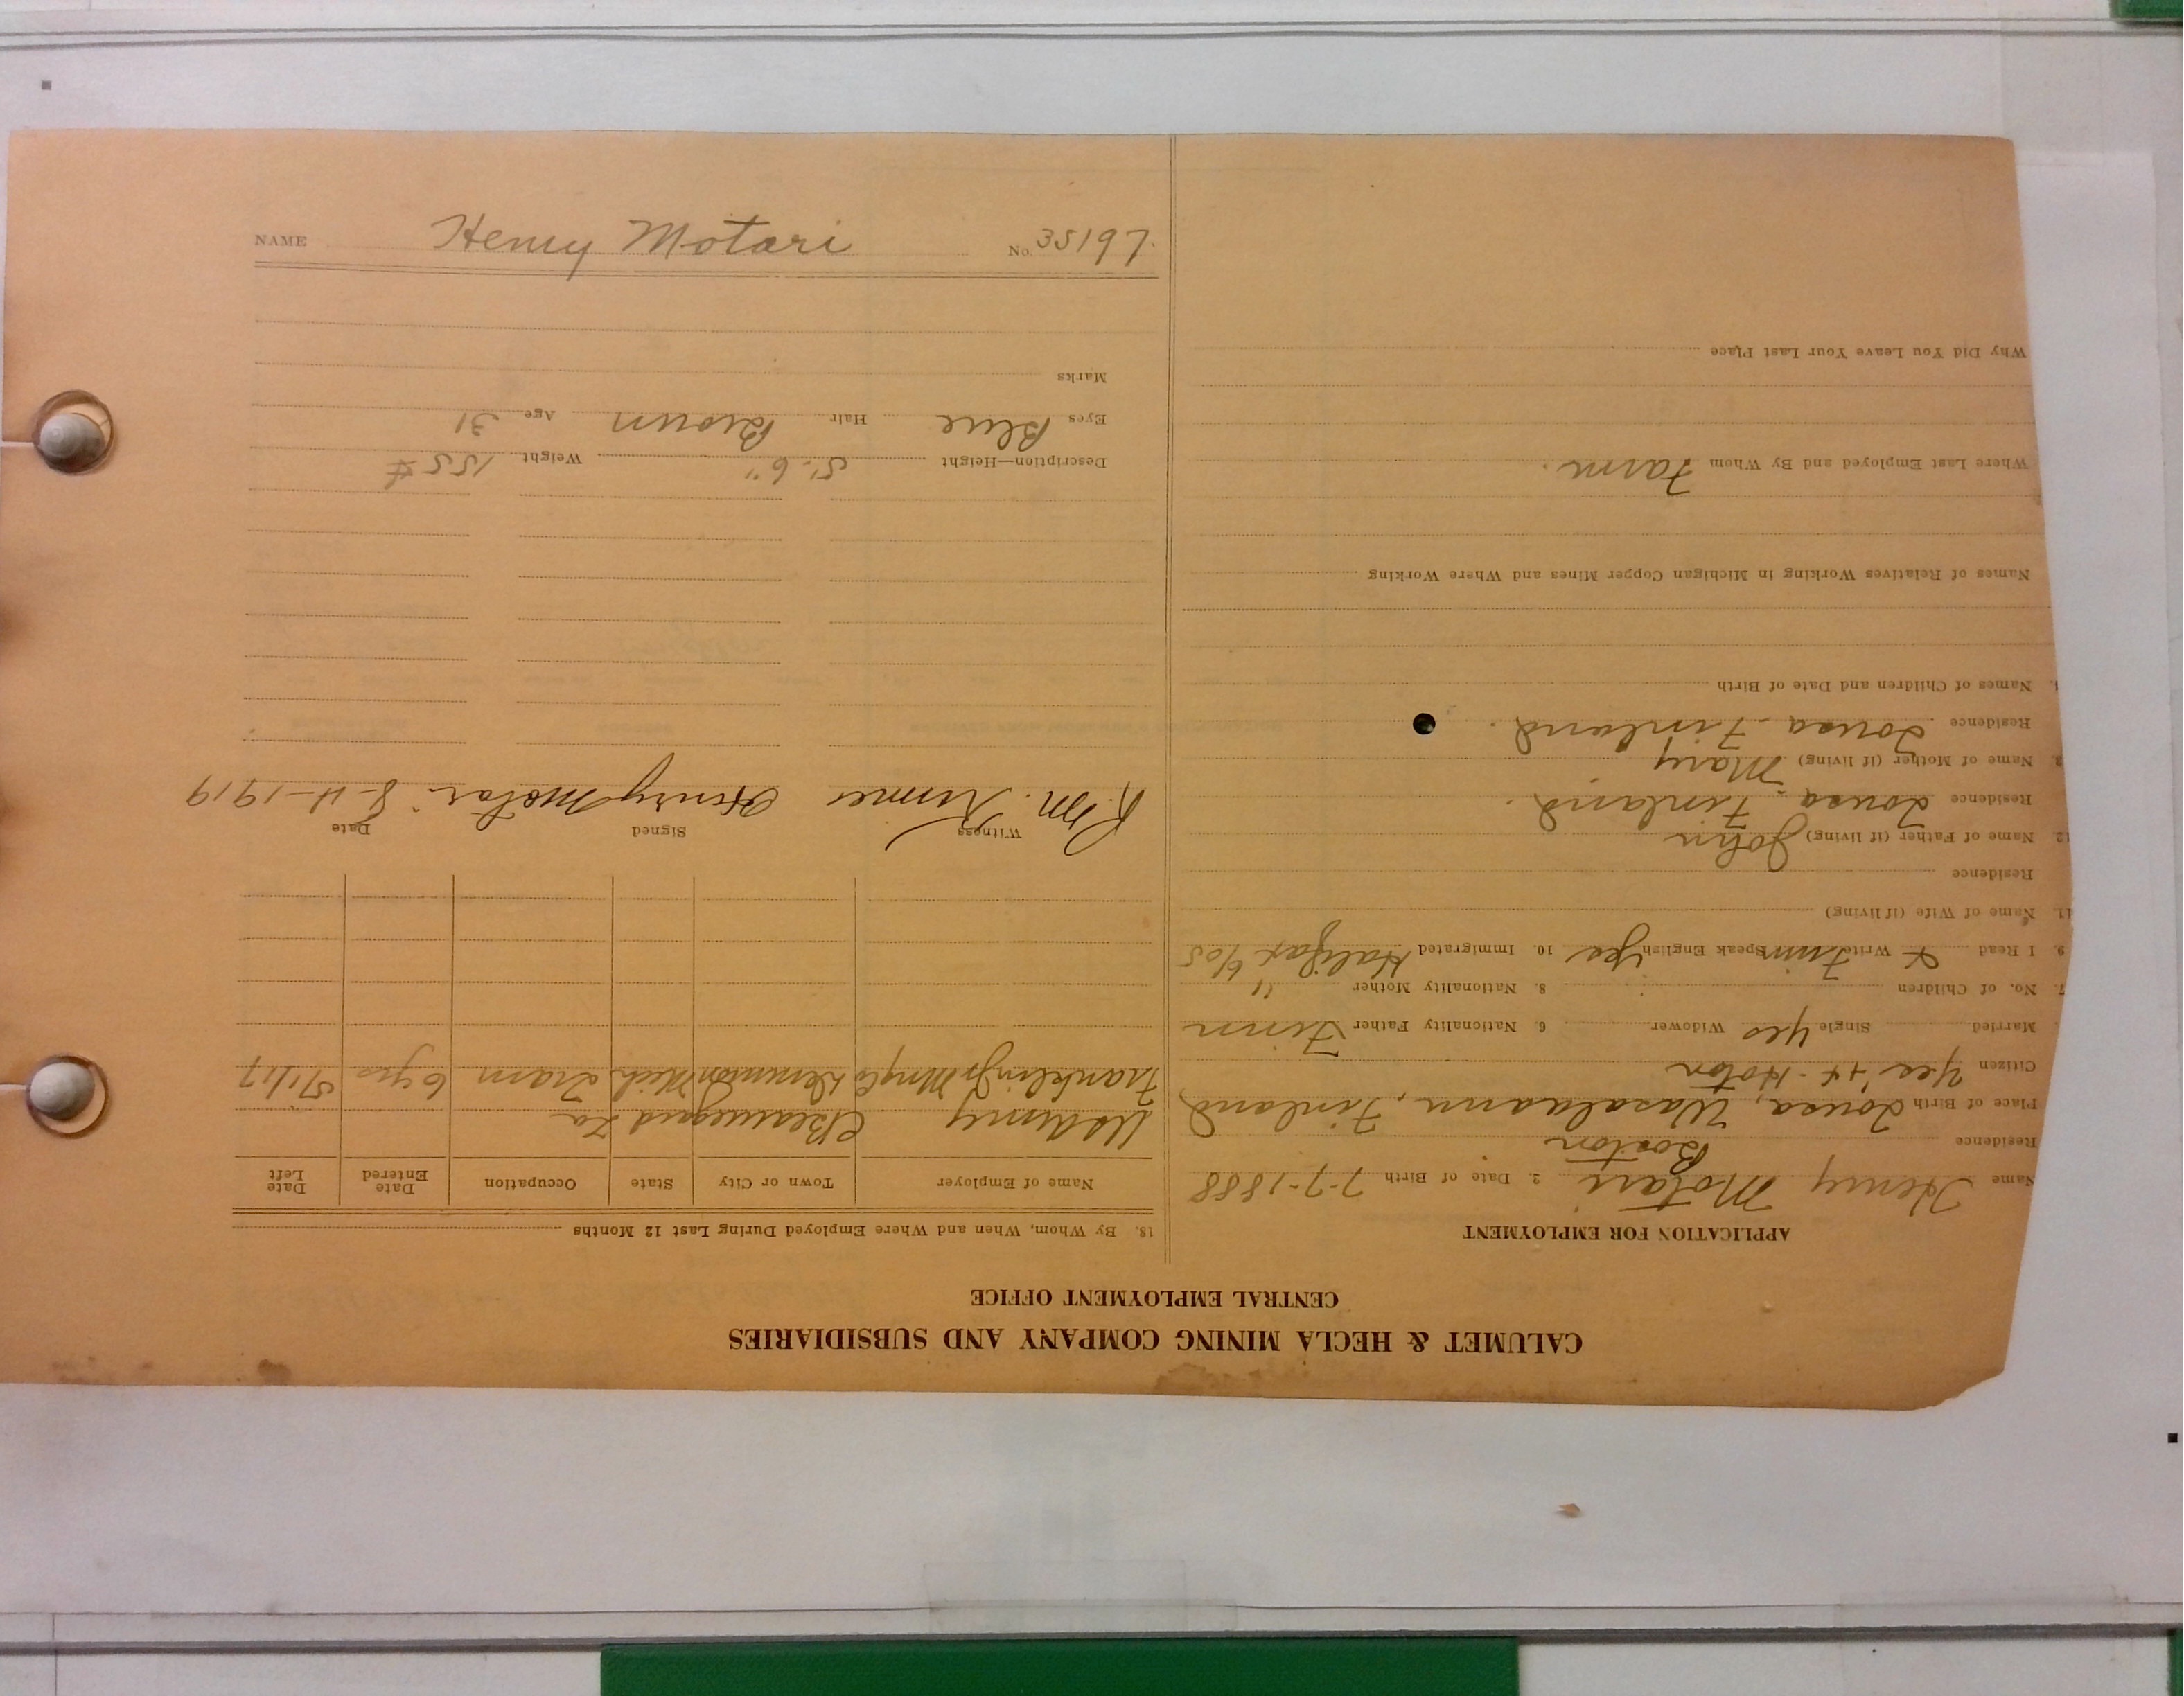 CALUMET & HECLA MINING COMPANY AND SUBSIDIARIES
CENTRAL EMPLOYMENT OFFICE
APPLICATION FOR EMPLOYMENT
Name Henry Motari 2. Date of Birth 7-7-1888
Residence Boston
Place of Birth Finland
Citizen Yes
Married Single Yes Widower 6. Nationality Father Finn
7. No. of Children 8. Nationality Mother "
9. I Read & Write Finn Speak English Yes 10. Immigrated Halifax 6/05
11. Name of Wife (if living)
Residence
12. Name of Father (if living) John
Residence Finland.
Name of Mother (if living) Mary
Residence Finland.
Names of Children and Date of Birth
Names of Relatives Working in Michigan Copper Mines and Where Working
Where Last Employed and By Whom Farm.
Why Did You Leave Your Last Place
18. By Whom, When and Where Employed During Last 12 Months
Name of Employer Town or City State Occupation Date Entered Date Left
US Army Beauregard La
Franklin Jr Mng Co Demmon Mich Tram 6 yrs 5/1/17
Witness Signed Date
R. M. Henry Motari 8-11-1919
Description—Height 5'-6" Weight 155 #
Eyes Blue Hair Brown Age 31
Marks
NAME Henry Motari No. 35197.